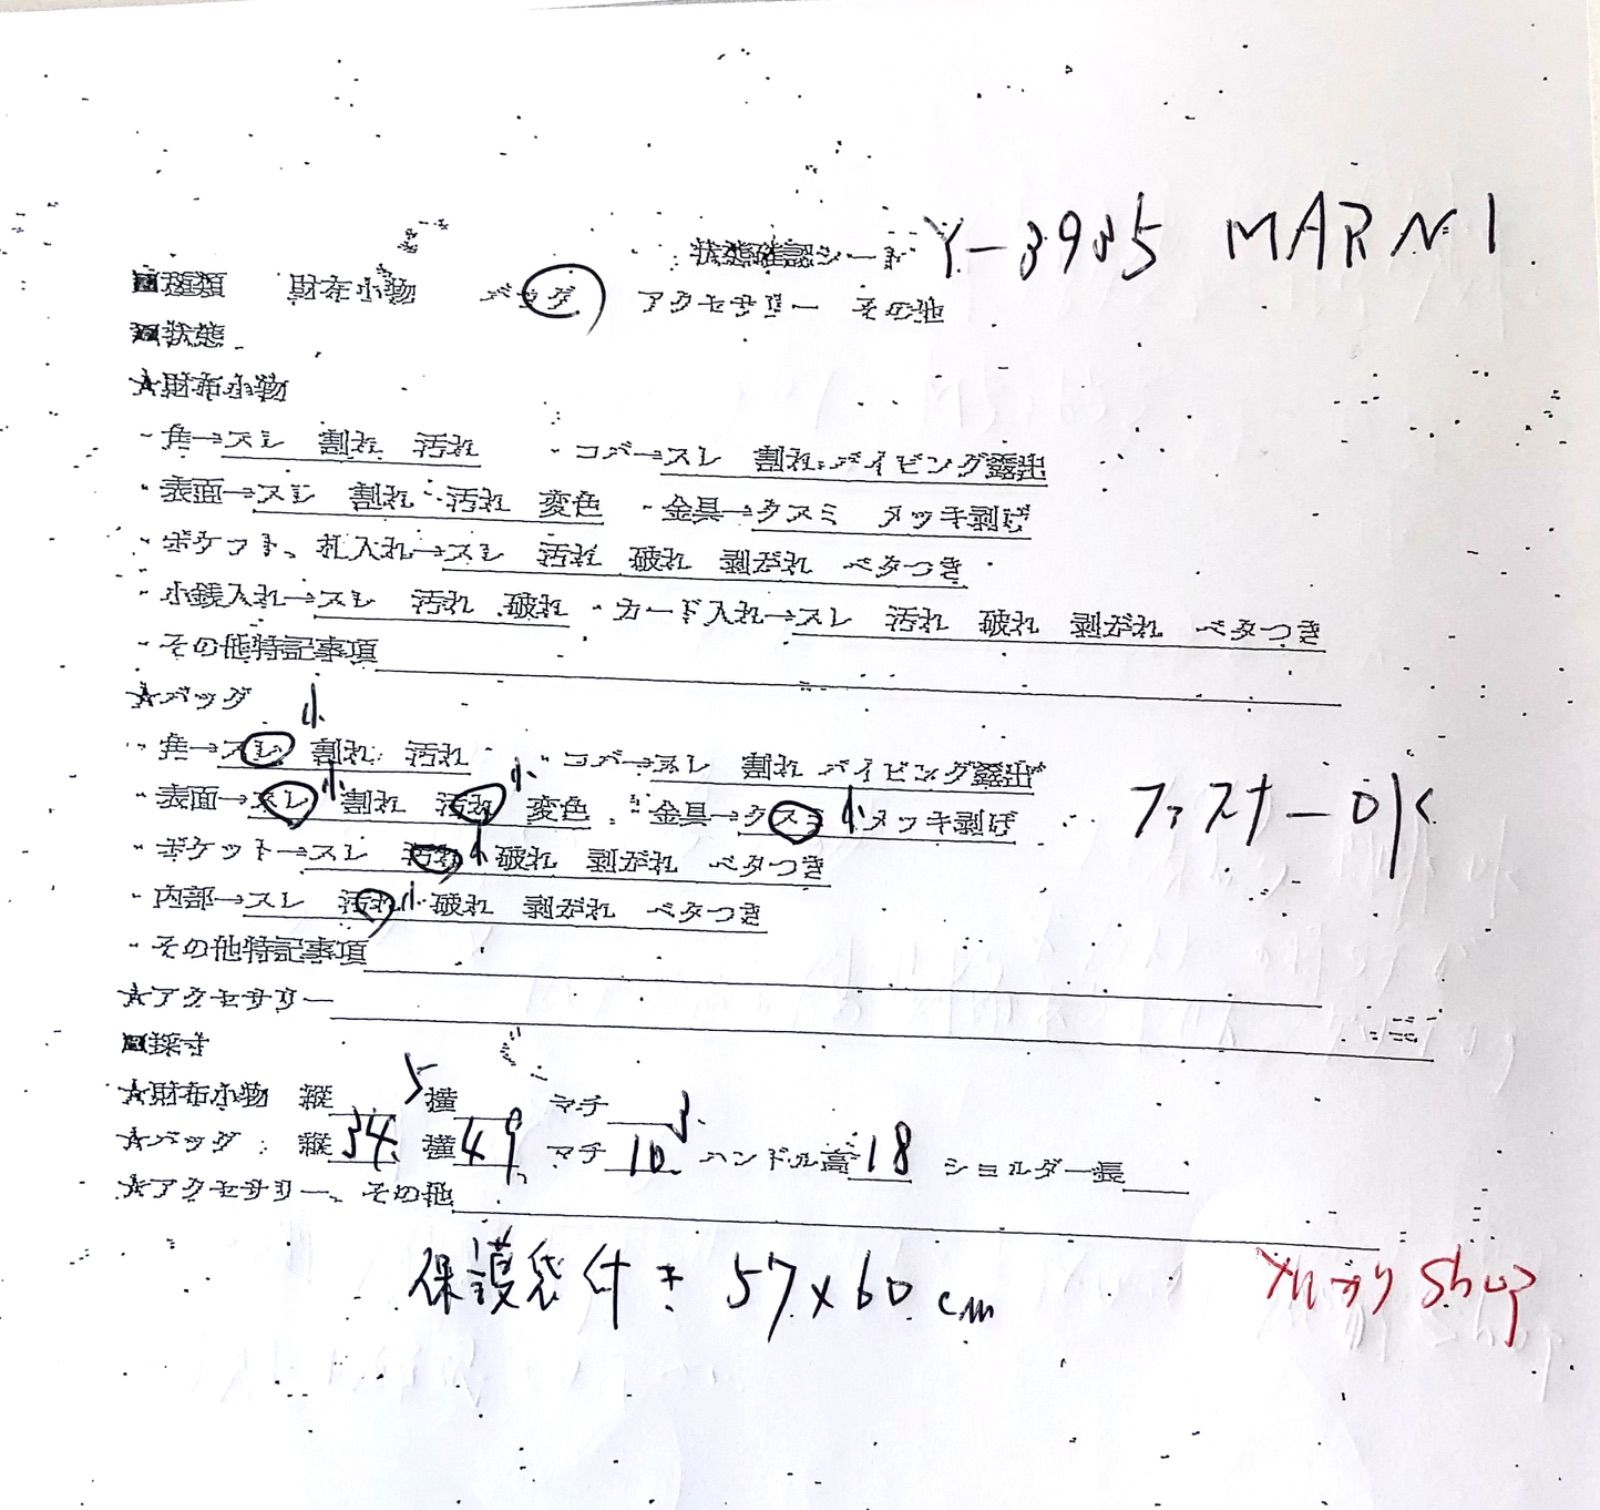 状態確認シート Y-3935 MARNI
■種類 財布小物 バッグ アクセサリー その他
■状態
★財布小物
・角→スレ 割れ 汚れ ・コバ→スレ 割れ パイピング露出
・表面→スレ 割れ 汚れ 変色 ・金具→クスミ メッキ剥げ
・ポケット、札入れ→スレ 汚れ 破れ 剥がれ ベタつき
・小銭入れ→スレ 汚れ 破れ ・カード入れ→スレ 汚れ 破れ 剥がれ ベタつき
・その他特記事項
★バッグ
小
・角→スレ 割れ 汚れ ・コバ→スレ 割れ パイピング露出
・表面→スレ 小 割れ 汚れ 小 変色 ・金具→クスミ 小 メッキ剥げ ファスナーOK
・ポケット→スレ 汚れ 小 破れ 剥がれ ベタつき
・内部→スレ 汚れ 小 破れ 剥がれ ベタつき
・その他特記事項
★アクセサリー
■採寸
★財布小物 縦 横 マチ
★バッグ 縦 34 横 49 マチ 10 ハンドル高 18 ショルダー長
★アクセサリー、その他
保護袋付き 57×60cm
Shop